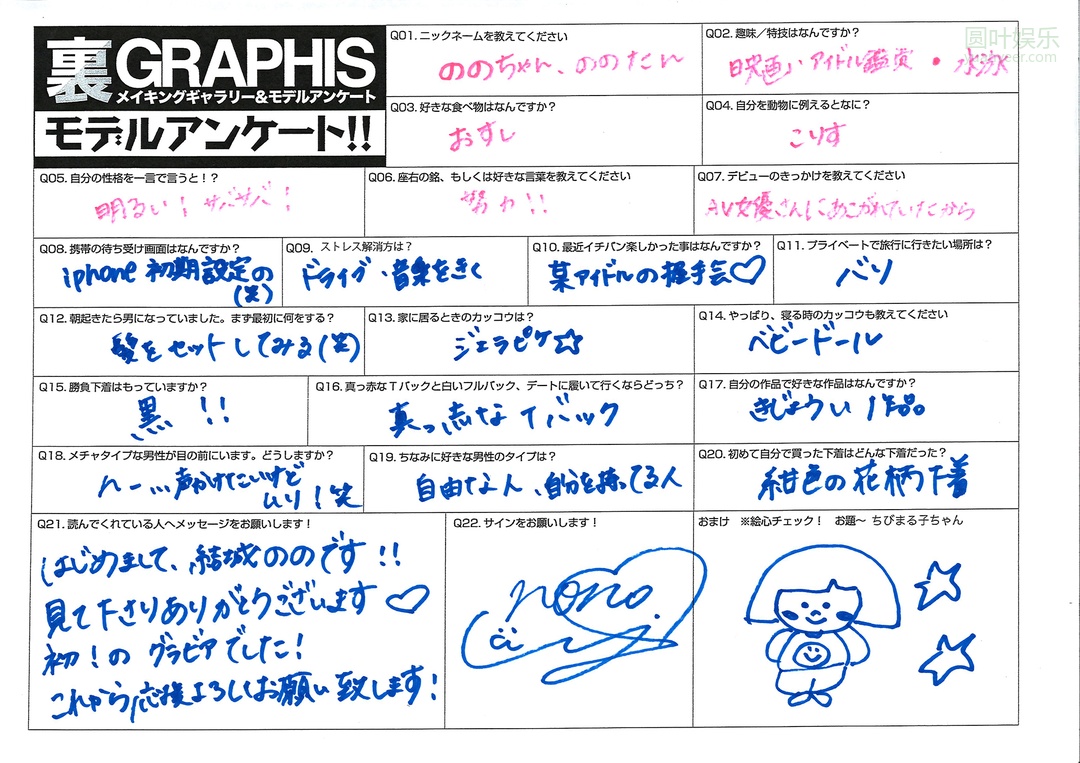 裏GRAPHIS
メイキングギャラリー&モデルアンケート
モデルアンケート!!
圆叶娱乐
Q01. ニックネームを教えてください
ののちゃん、ののたん
Q02. 趣味／特技はなんですか？
映画、アイドル鑑賞・水泳
Q03. 好きな食べ物はなんですか？
おすし
Q04. 自分を動物に例えるとなに？
こりす
Q05. 自分の性格を一言で言うと！？
明るい！サバサバ！
Q06. 座右の銘、もしくは好きな言葉を教えてください
努力!!
Q07. デビューのきっかけを教えてください
AV女優さんにあこがれていたから
Q08. 携帯の待ち受け画面はなんですか？
iphone 初期設定の
(笑)
Q09. ストレス解消方は？
ドライブ、音楽をきく
Q10. 最近イチバン楽しかった事はなんですか？
某アイドルの握手会♡
Q11. プライベートで旅行に行きたい場所は？
パリ
Q12. 朝起きたら男になっていました。まず最初に何をする？
髪をセットしてみる(笑)
Q13. 家に居るときのカッコウは？
ジェラピケ☆
Q14. やっぱり、寝る時のカッコウも教えてください
ベビードール
Q15. 勝負下着はもっていますか？
黒!!
Q16. 真っ赤なTバックと白いフルバック、デートに履いて行くならどっち？
真っ赤なTバック
Q17. 自分の作品で好きな作品はなんですか？
きじょうい作品
Q18. メチャタイプな男性が目の前にいます。どうしますか？
んー…声かけたいけど
ムリ！笑
Q19. ちなみに好きな男性のタイプは？
自由な人、自分を持ってる人
Q20. 初めて自分で買った下着はどんな下着だった？
紺色の花柄下着
Q21. 読んでくれている人へメッセージをお願いします！
はじめまして、結城ののです!!
見て下さりありがとうございます♡
初！のグラビアでした！
これから応援よろしくお願い致します！
Q22. サインをお願いします！
nono
おまけ ※絵心チェック！ お題〜 ちびまる子ちゃん